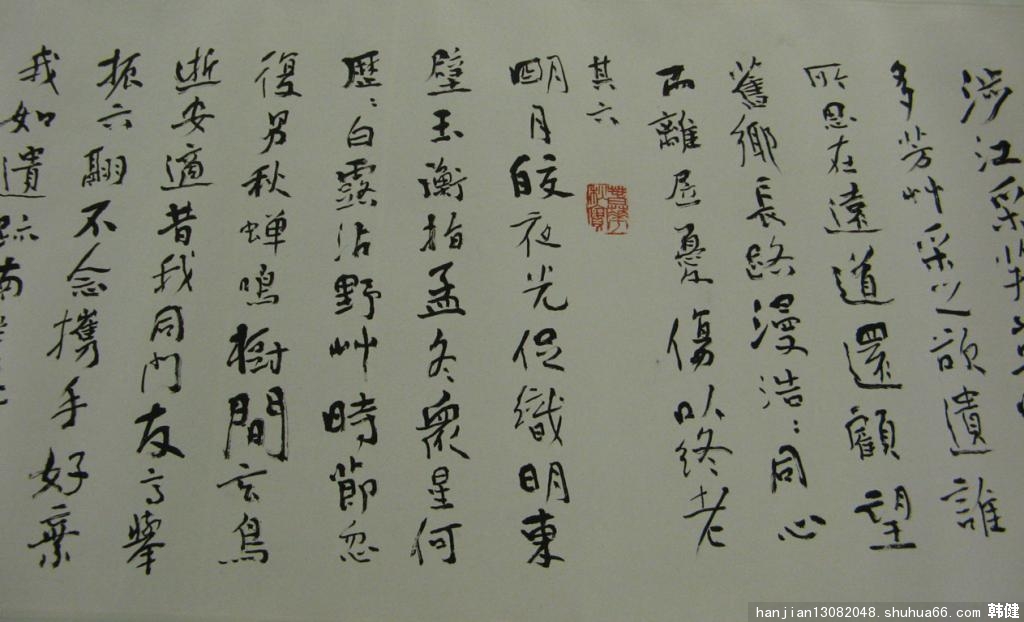 涉江采
多芳艸采之欲遺誰
所思在遠道還顧望
舊鄉長路漫浩：同心
而離居憂傷以終老
其六
明月皎夜光促織明東
壁玉衡指孟冬眾星何
歷：白露沾野艸時節忽
復易秋蟬鳴樹間玄鳥
逝安適昔我同門友高舉
振六翮不念攜手好棄
我如遺跡南
hanjian13082048.shuhua66.com 韩健